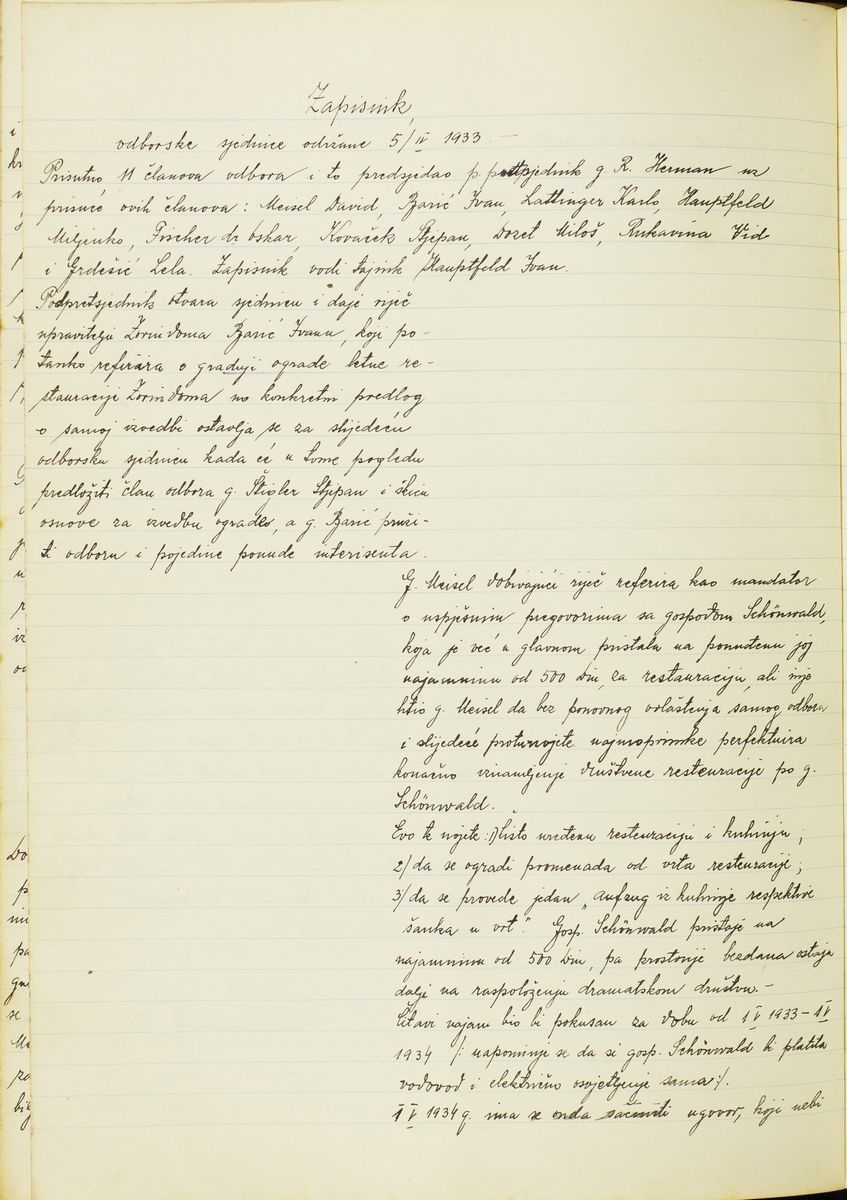 Zapisnik,
odborske sjednice održane 5/IV 1933. —
Prisutno 11 članova odbora i to predsjedao p. g. R. Herman uz
prisuće ovih članova: Meisel David, Barić Ivan, Lattinger Karlo, Hauptfeld
Miljenko, Fischer dr Oskar, Kovaček Stjepan, Dozet Miloš, Rukavina Vid
i Grdešić Lela. Zapisnik vodi tajnik Hauptfeld Ivan.
Podpretsjednik otvara sjednicu i daje riječ
upravitelju Zorindoma Barić Ivanu, koji po-
tanko referira o gradnji ograde letne re-
stauracije Zorindoma no konkretni predlog
o samoj izvedbi ostavlja se za slijedeću
odborsku sjednicu kada će u tome pogledu
predložiti član odbora g. Štigler Stjepan i skicu
osnove za izvedbu ograde, a g. Barić pruži-
ti odboru i pojedine ponude interisenta.
G. Meisel dobivajući riječ referira kao mandator
o uspješnim pregovorima sa gospođom Schönwald,
koja je već u glavnom pristala na ponuđenu joj
najamninu od 500 Din, za restauraciju, ali nije
htio g. Meisel da bez ponovnog ovlaštenja samog odbora
i slijedeće najmoprimke perfektuira
konačno iznamljenje društvene restauracije po g.
Schönwald.
Evo te uvjete: 1) čisto uređenu restauraciju i kuhinju;
2/ da se ogradi promenada od vrta restauracije;
3/ da se provede jedan „aufzug iz kuhinje respektive
šanka u vrt“. Gosp. Schönwald pristaje na
najamninu od 500 Din, pa prostorije bezdana ostaju
dalje na raspoloženju dramatskom društvu. —
Čitavi najam bio bi pokusan za dobu od 1 V 1933 – 1 V
1934 /: napominje se da si gosp. Schönwald bi platila
vodovod i električno osvjetljenje sama :/.
1 V 1934 g. ima se onda sačiniti ugovor, koji nebi